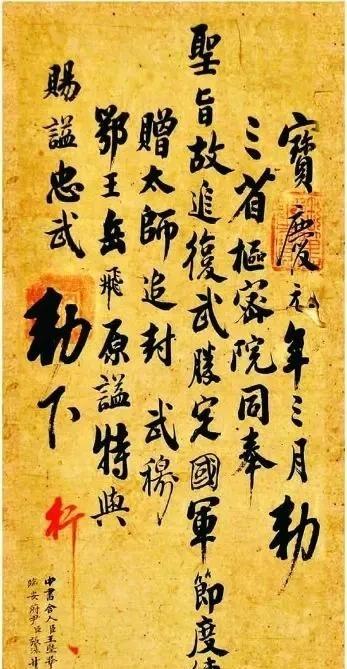 寶慶元年三月勅
三省樞密院同奉
聖旨故追復武勝定國軍節度使
贈太師追封 武穆
鄂王岳飛原諡特與
賜諡忠武
勅下
行
中書舍人臣王塈
臨安府尹臣張